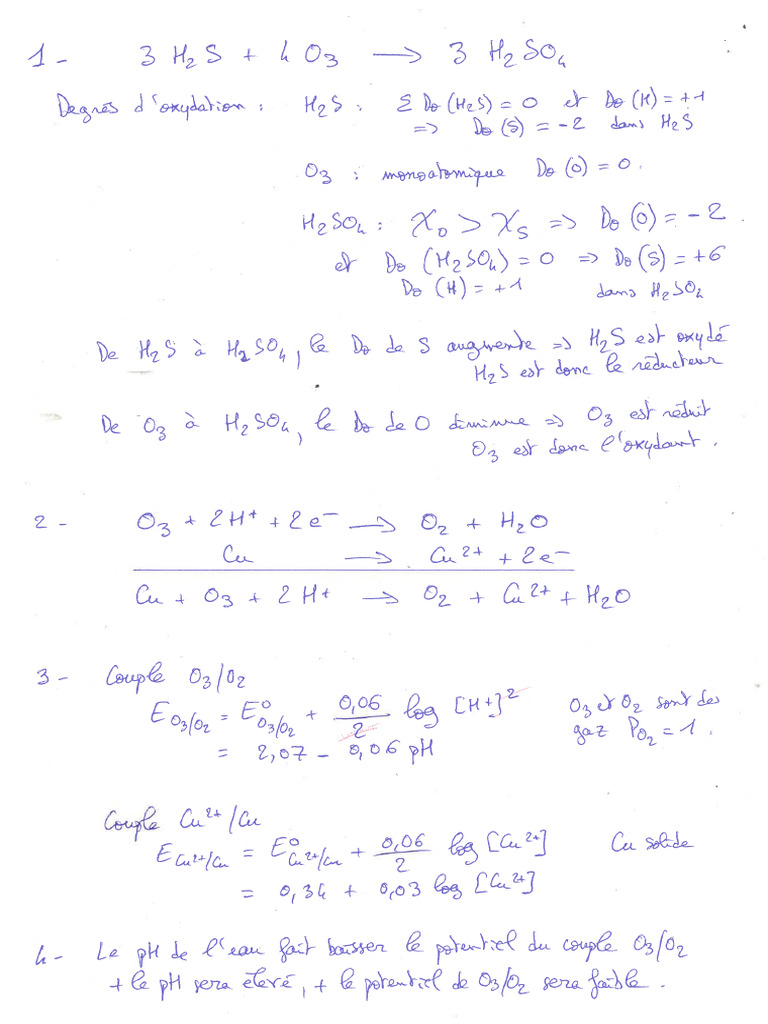 1- 3 H₂S + 4 O₃ → 3 H₂SO₄
Degrés d'oxydation : H₂S : Σ Do (H₂S) = 0 et Do (H) = +1
=> Do (S) = -2 dans H₂S
O₃ : monoatomique Do (O) = 0.
H₂SO₄ : χO > χS => Do (O) = -2
et Do (H₂SO₄) = 0 => Do (S) = +6
Do (H) = +1 dans H₂SO₄
De H₂S à H₂SO₄, le Do de S augmente => H₂S est oxydé
H₂S est donc le réducteur
De O₃ à H₂SO₄, le Do de O diminue => O₃ est réduit
O₃ est donc l'oxydant.
2- O₃ + 2H⁺ + 2e⁻ → O₂ + H₂O
Cu → Cu²⁺ + 2e⁻
Cu + O₃ + 2H⁺ → O₂ + Cu²⁺ + H₂O
3- Couple O₃/O₂
E O₃/O₂ = E⁰ O₃/O₂ + 0,06/2 log [H⁺]² O₃ et O₂ sont des
= 2,07 - 0,06 pH gaz PO₂ = 1.
Couple Cu²⁺/Cu
E Cu²⁺/Cu = E⁰ Cu²⁺/Cu + 0,06/2 log [Cu²⁺] Cu solide
= 0,34 + 0,03 log [Cu²⁺]
4- Le pH de l'eau fait baisser le potentiel du couple O₃/O₂
+ le pH sera élevé, + le potentiel de O₃/O₂ sera faible.